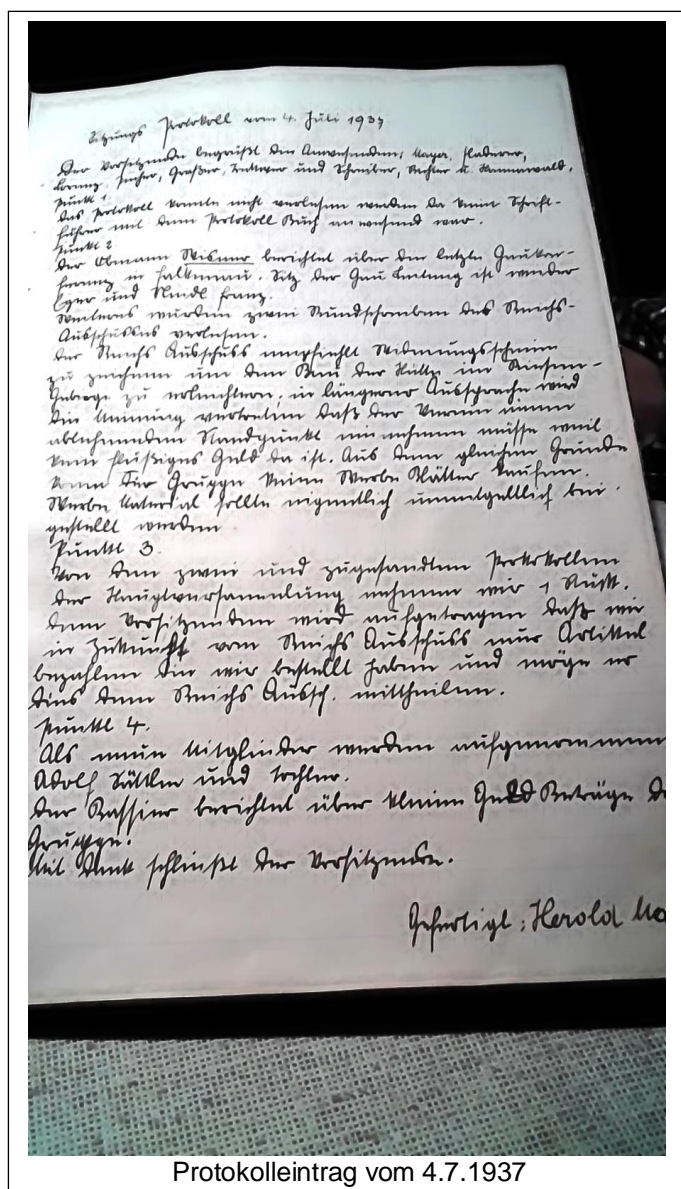 Sitzungs Protokoll vom 4. Juli 1937
Der Vorsitzende begrüßt die Anwesenden; Mayer, Haderer,
Lorenz, Pucher, Graßer, und Schreiber, Richter u. Kannawald,
Punkt 1
Das Protokoll konnte nicht verlesen werden da kein Schrift-
führer mit dem Protokoll Buch anwesend war.
Punkt 2
Der Obmann Wisner berichtet über die letzte Gaukon-
ferenz in Falkenau. Sitz der Gau Leitung ist wieder
Eger und Franz.
Weiters wurden zwei Rundschreiben des Reichs-
Ausschusses verlesen.
Der Reichs Ausschuss empfiehlt Widmungsscheine
zu zeichnen um den Bau der Hütte im Riesen-
Gebirge zu erleichtern, in längerer Aussprache wird
die Meinung vertreten daß der Verein einen
ablehnenden Standpunkt einnehmen müsse weil
kein flüßiges Geld da ist. Aus dem gleichen Grunde
kann die Gruppe keine Werbe Blätter kaufen.
Werbe Material sollte eigentlich unentgeltlich bei-
gestellt werden
Punkt 3.
Von den zwei uns zugesandten Protokollen
der Hauptversammlung nehmen wir 1 Stück.
Dem Vorsitzenden wird aufgetragen daß wir
in Zukunft vom Reichs Ausschuss nur Artikel
bezahlen die wir bestellt haben und möge er
dies dem Reichs Aussch. mittheilen.
Punkt 4.
Als neue Mitglieder werden aufgenommen
Adolf und Tochter.
Der Kassier berichtet über kleine Geld Beträge de
Gruppe.
Mit Dank schließt der Vorsitzende.
Gefertigt: Herold Ma
Protokolleintrag vom 4.7.1937